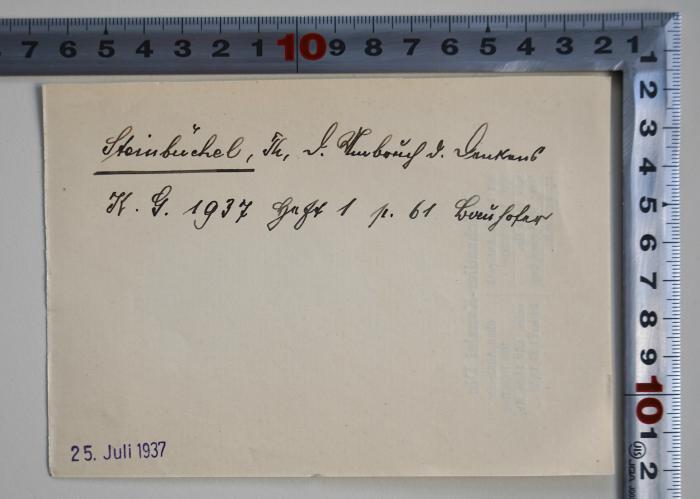 7 6 5 4 3 2 1 10 9 8 7 6 5 4 3 2 1
1 2 3 4 5 6 7 8 9 10 1 2
Steinbüchel, Th, D. Umbruch d. Denkens
K. G. 1937 Heft 1 p. 61 Bauhofer
25. Juli 1937
JIS